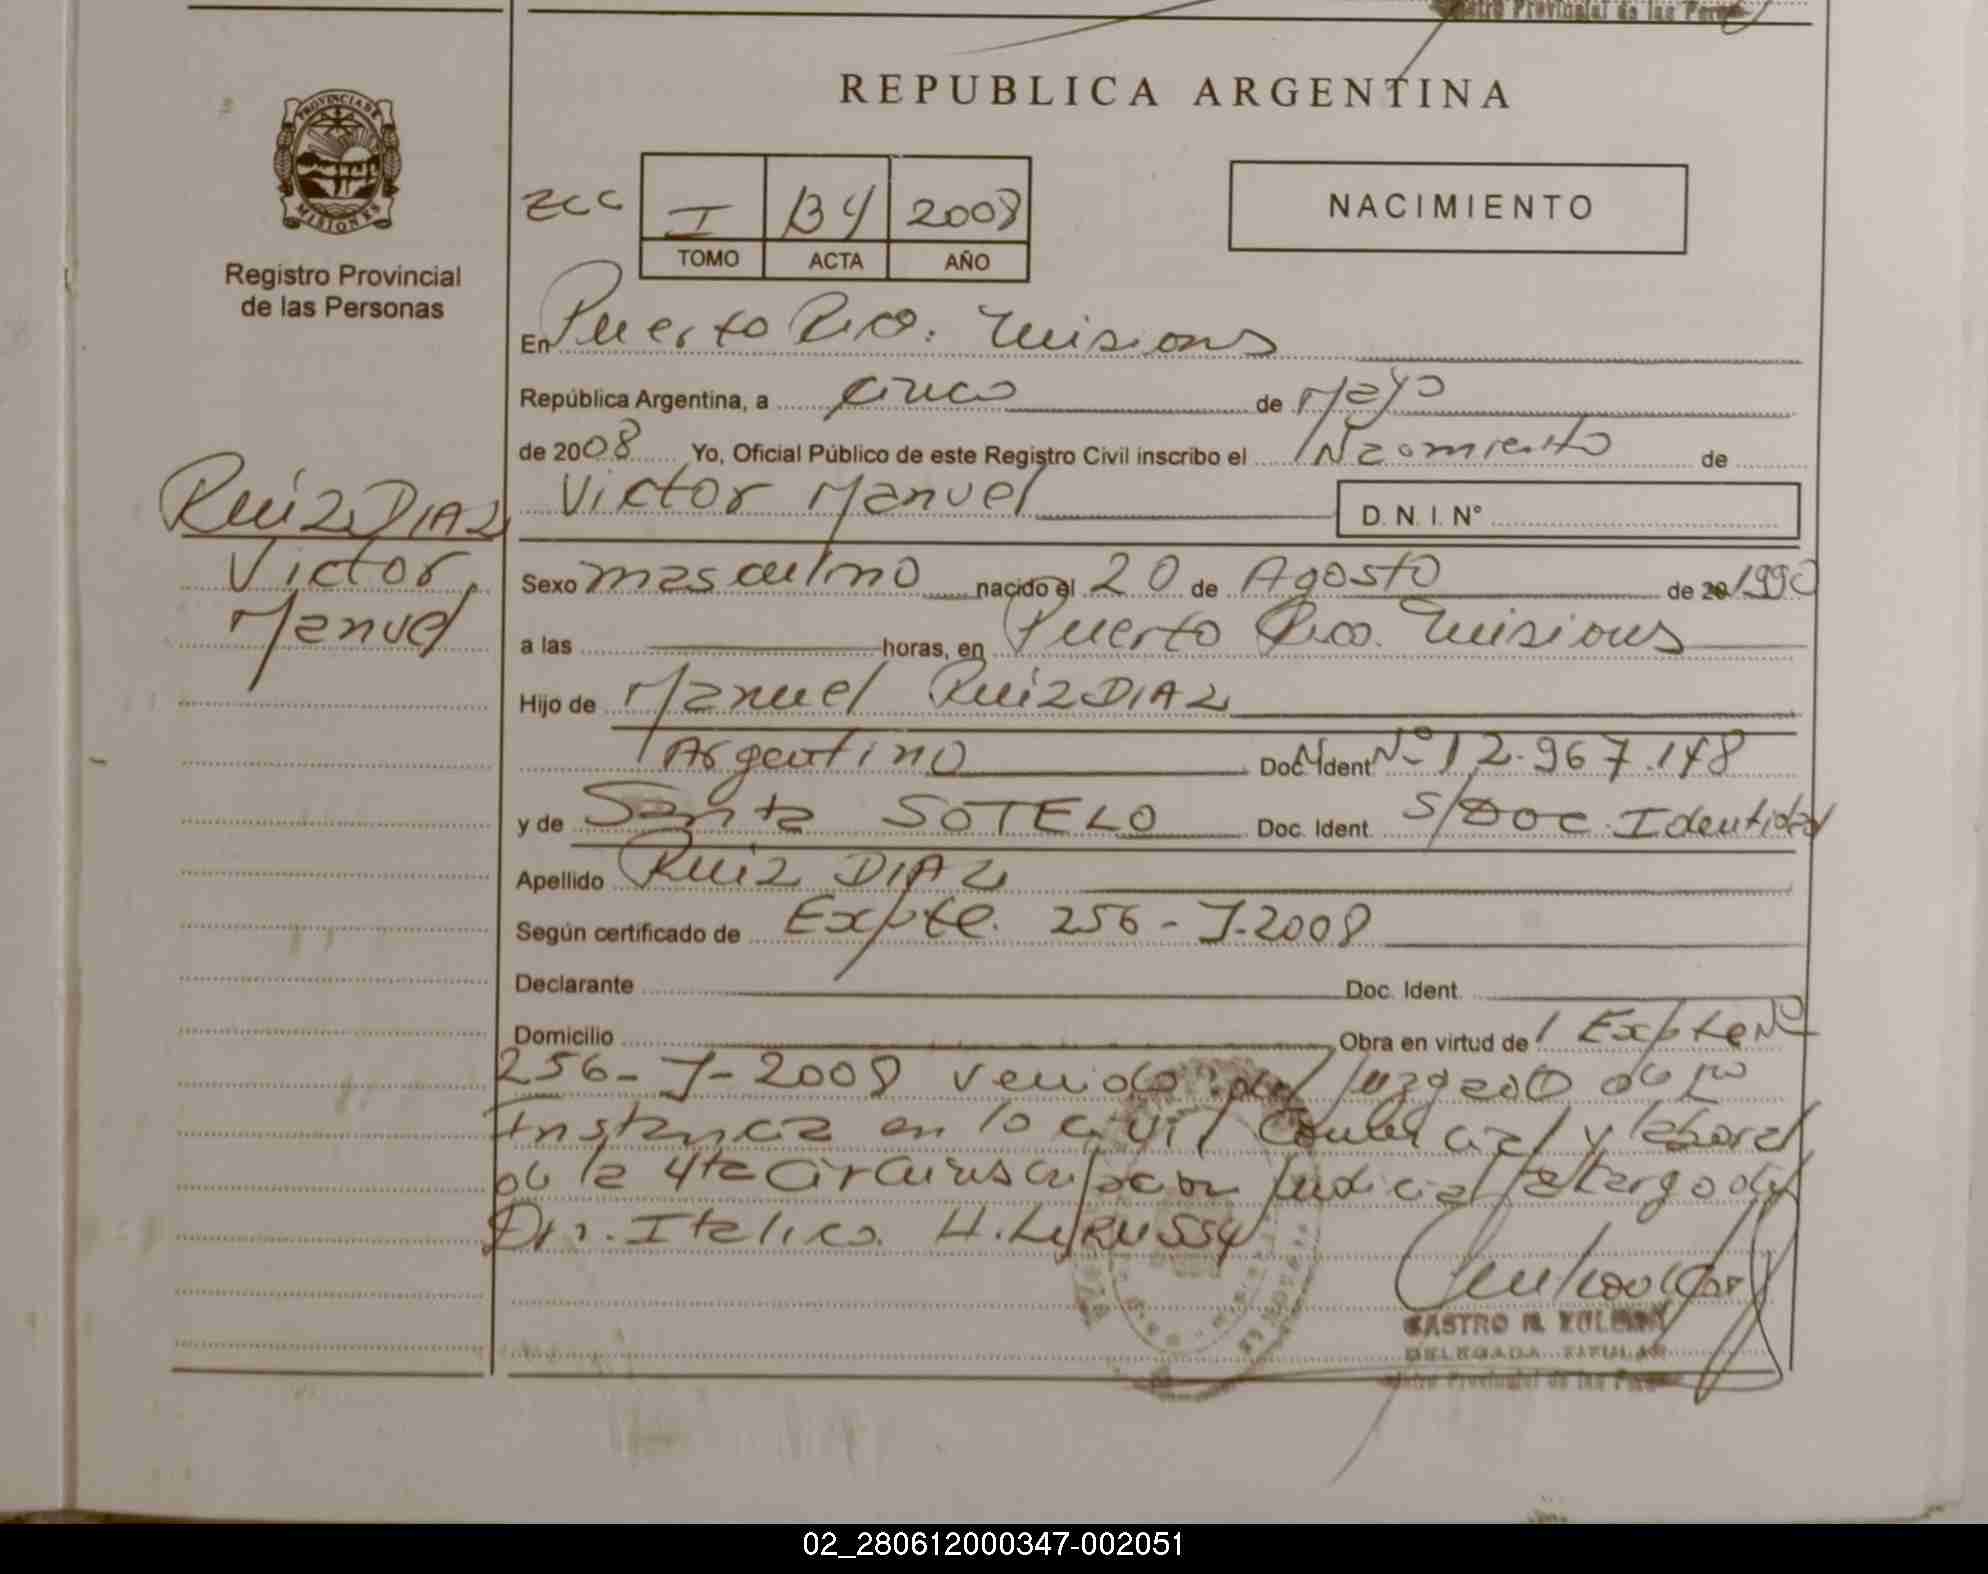 REPUBLICA ARGENTINA
PROVINCIA DE MISIONES
Registro Provincial
de las Personas
NACIMIENTO
I 2008
TOMO ACTA AÑO
En Puerto Rico. Misiones
República Argentina, a cinco de Mayo
de 2008 Yo, Oficial Público de este Registro Civil inscribo el Nacimiento de
Victor Manuel D. N. I. N°
Ruiz DIAZ
Victor
Manuel
Sexo masculino nacido el 20 de Agosto de 1990
a las horas, en Puerto Rico. Misiones
Hijo de Manuel Ruiz DIAZ
Argentino Doc. Ident Nº 12.967.148
y de Santa SOTELO Doc. Ident. S/Doc. Identidad
Apellido Ruiz DIAZ
Según certificado de Expte. 256-J-2008
Declarante Doc. Ident.
Domicilio Obra en virtud de Expte Nº
256-J-2008 venido del Juzgado de
Instancia en lo Civil Comercial y laboral
de la 4ta Circunscripcion Judicial a cargo del
Dr. Italico. H.
CASTRO
DELEGADA TITULAR
Registro Provincial de las Personas
02_280612000347-002051